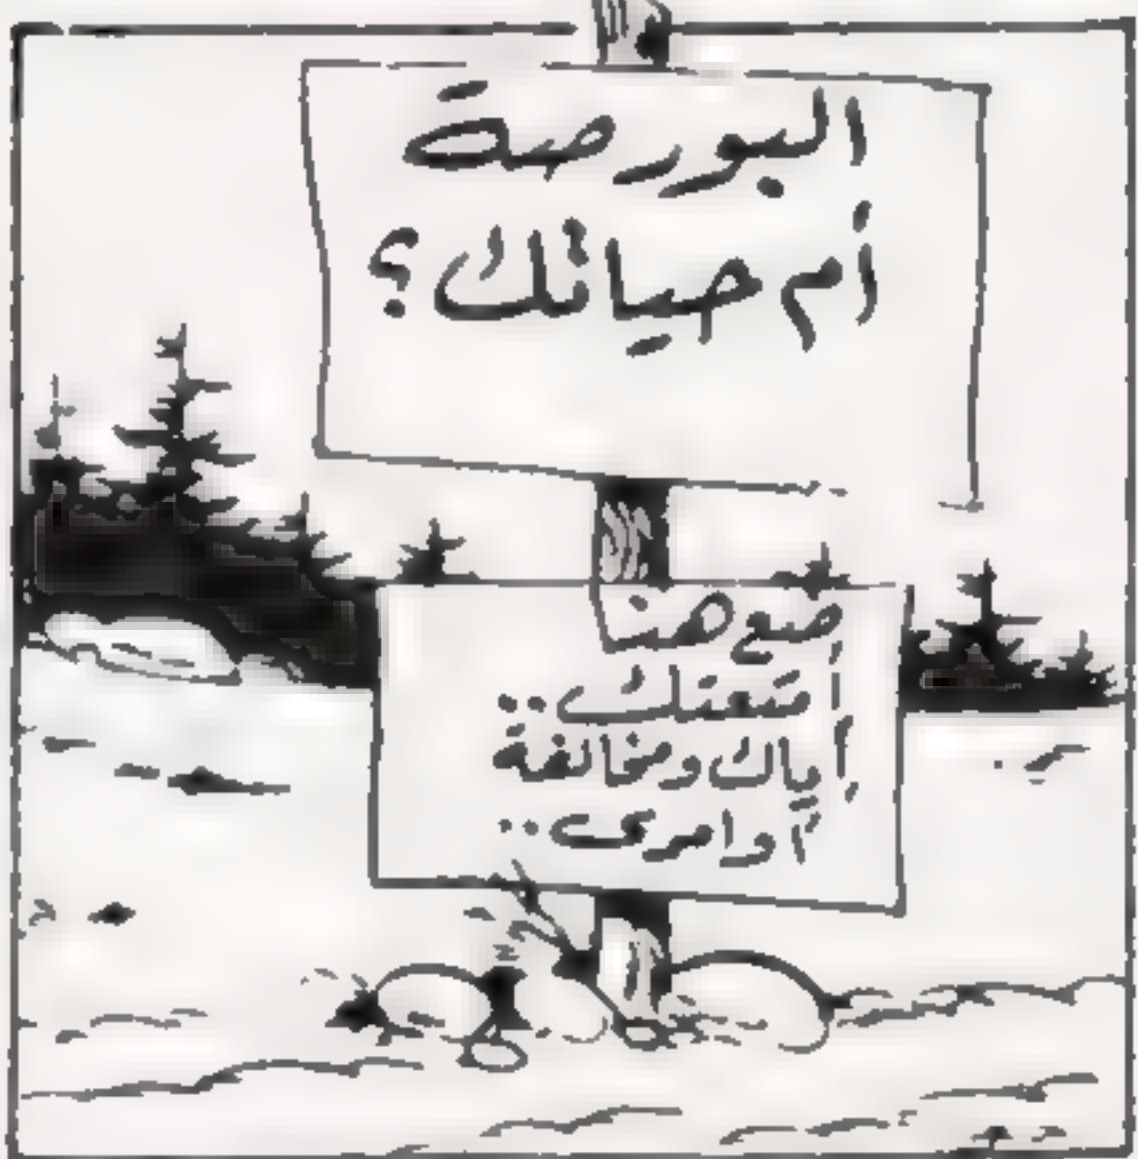 البورصة
أم حياتك؟
ضع هنا
متعتك..
إياك ومخالفة
أوامرى..